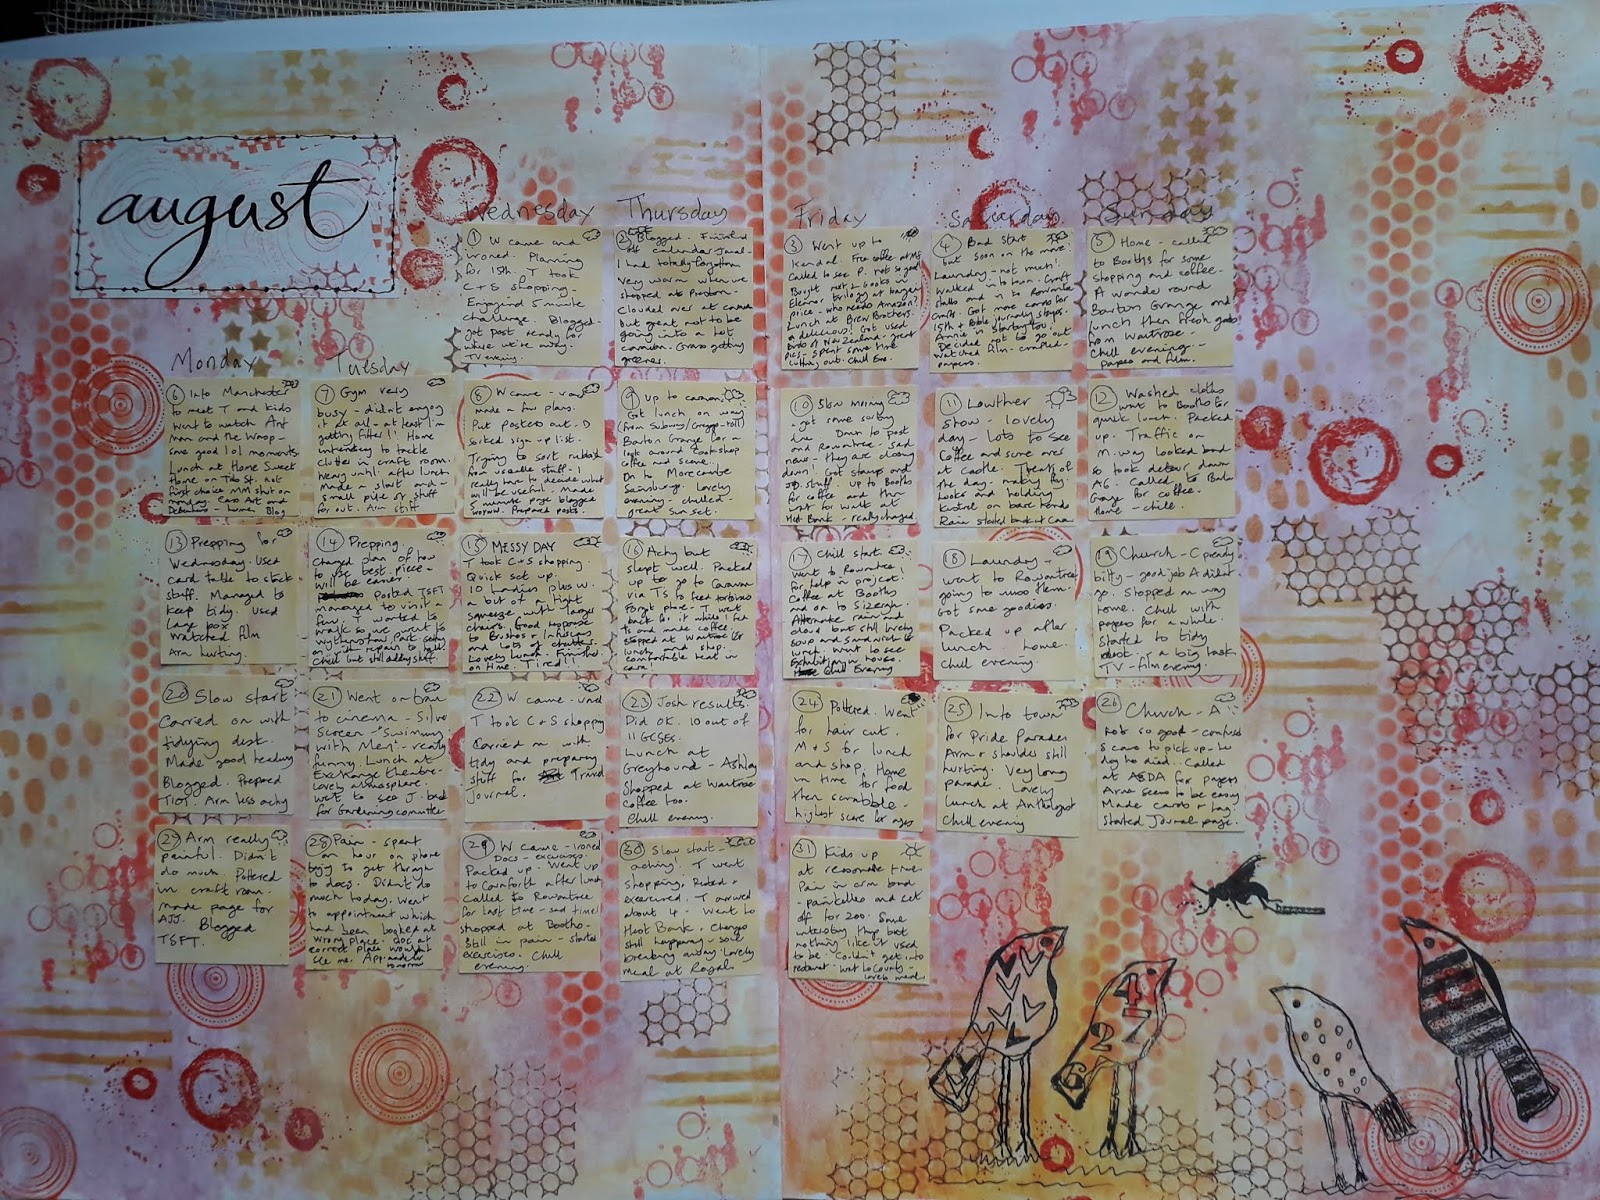 august
Wednesday
Thursday
Friday
Saturday
Sunday
① W came and
ironed. Planning
for 15th. T took
C + S shopping -
Enjoyed 5 minute
challenge. Blogged -
got post ready for
when we're away.
TV evening.
② Blogged. Finished
off calendar Jrnal -
I had totally forgotten
Very warm when we
shopped at
Clouded over at
but great not to be
going into a hot
caravan. Grass getting
greener.
③ Went up to
Kendal. Free coffee at MS
Called to see P. not so good
Bought
Eleanor trilogy at bargain
price - who needs Amazon?
Lunch at Brew Brothers.
delicious! Got used
of New Zealand - great
pics - spent some time
cutting out. Chill Eve.
④ Bad Start
but soon on the move!
Laundry - not much!
Walked into town. Craft
stalls and in to Rowntree
Crafts. Got more
15th + Bible journaling
Annie in Starbys too!
Decided not to go out
watched film - crafted -
papers.
⑤ Home - called
to Booths for some
shopping and coffee.
A wander round
Barton Grange and
lunch then fresh goods
from Waitrose.
Chill evening -
papers and film.
Monday
Tuesday
⑥ Into Manchester
to meet T and kids
Went to watch Ant
Man and the Wasp -
some good lol moments.
Lunch at Home Sweet
Home on
first choice MM shut on
Monday. Cass Art and
- home. Blog
⑦ Gym very
busy - didn't enjoy
it at all - at least I'm
getting fitter!! Home
intending to tackle
clutter in craft room.
heavy until after lunch
Made a start and -
small pile of stuff
for out. Arm stiff
⑧ W came -
made a few plans.
Put posters out. D
sorted sign up list.
Trying to sort rubbish
from useable stuff - I
really have to decide what
will be useful. Made
5 minute page blogged
Prepared posts.
⑨ Up to caravan.
Got lunch on way
(from Subway/Greggs -
Barton Grange for a
look around Cookshop
coffee and scone.
On to Morecambe
Sainsburys. Lovely
evening - chilled -
great sunset.
⑩ Slow morning
- got some sorting
done. Down to post
and Rowntree. sad
news - they are closing
down! Got stamps and
JD stuff. Up to Booths
for coffee and then
went for walk at
Hest Bank - really changed
⑪ Lowther
show - lovely
day - lots to see
Coffee and scone
at Castle. Treats of
the day - making
books and holding
Kestrel on bare hands
Rain started back at Cara
⑫ Washed cloths
went to Booths for
quick lunch. Packed
up. Traffic on
M. way looked bad
so took detour down
A6. Called to Barton
Grange for coffee.
Home - chill.
⑬ Prepping for
Wednesday. Used
card table to stack
stuff. Managed to
keep tidy. Used
large box
Watched film
Arm hurting.
⑭ Prepping.
Changed plan of how
to use best. piece -
will be easier.
Posted TSFT
managed to visit a
few. T wanted to
walk so we went to
Wythenshawe Park
on with repairs to hall.
Chill but still achy
⑮ MESSY DAY
T took C + S shopping.
Quick set up.
10 Ladies plus W.
a bit of a tight
squeeze with larger
chairs. Good response
to Brushos + Infusions
and lots of chatter.
Lovely lunch - Finished
on time. Tired!!
⑯ Achy but
slept well. Packed
up to go to Caravan
via TS to feed tortoises
Forgot phone - T went
back for it while I fed
Ts and made coffee.
Stopped at Waitrose for
lunch and shop.
Comfortable heat in
cara!
⑰ Chill start.
Went to Rowntree!
for help in project.
Coffee at Booths
and on to Sizergh.
Alternate rain and
cloud but still lovely
soup and sandwich for
lunch. Went to see
Exhibition in house.
Chill Evening
⑱ Laundry -
went to Rowntree
going to miss them.
Got some goodies.
Packed up after
lunch home.
Chill evening.
⑲ Church - C
bitty - good job A didn't
go. Stopped on way
home. Chill with
papers for a while.
Started to tidy
- a big task
TV - film evening.
⑳ Slow start
Carried on with
tidying desk.
Made good headway
Blogged. Prepared
TIOT. Arm less achy
㉑ Went on tram
to cinema - Silver
Screen - "Swimming
with Men" - really
funny. Lunch at
Exchange theatre -
lovely atmosphere.
went to see J - bad
for Gardening committee
㉒ W came -
T took C + S shopping
Carried on with
tidy and preparing
stuff for Travel
Journal.
㉓ Josh results.
Did OK. 10 out of
11 GCSEs.
Lunch at
Greyhound - Ashley
Shopped at Waitrose
coffee too.
Chill evening.
㉔ Pottered. Went
for hair cut.
M + S for lunch
and shop. Home
in time for food
then scrabble -
highest score for ages
㉕ Into town
for Pride Parade
Arm + shoulder still
hurting. Very long
parade. Lovely
lunch at Anthologist
Chill evening
㉖ Church - A
not so good - confused
S came to pick up - he
dog ho died. Called
at ASDA for papers
Arm seems to be easing
Made cards + tag.
started Journal page.
㉗ Arm really
painful. Didn't
do much. Pottered
in craft room.
made page for
AJJ. Blogged
TSFT.
㉘ Pain - spent
an hour on phone
trying to get through
to docs. Didn't do
much today. Went
to appointment which
had been booked at
wrong place. doc at
correct place wouldn't
see me. App. made for
tomorrow
㉙ W came - ironed
Docs - exercises.
Packed up. Went up
to Carnforth after lunch
Called to Rowntree
for last time - sad times!
shopped at Booths -
Still in pain - started
exercises. Chill
evening.
㉚ Slow start -
aching! T went
shopping, Rested +
exercised. T arrived
about 4 - Went to
Hest Bank. Changes
still happening - soul
breaking away Lovely
meal at Royal
㉛ Kids up
at reasonable time.
Pain in arm bad
- painkillers and set
off for zoo. Some
interesting things but
nothing like it used
to be. Couldn't get into
restaurant - went to County -
lovely meal